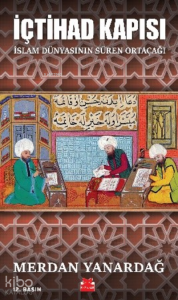 İÇTİHAD KAPISI
İSLAM DÜNYASININ SÜREN ORTAÇAĞI
MERDAN YANARDAĞ
12. BASIM
kitabix